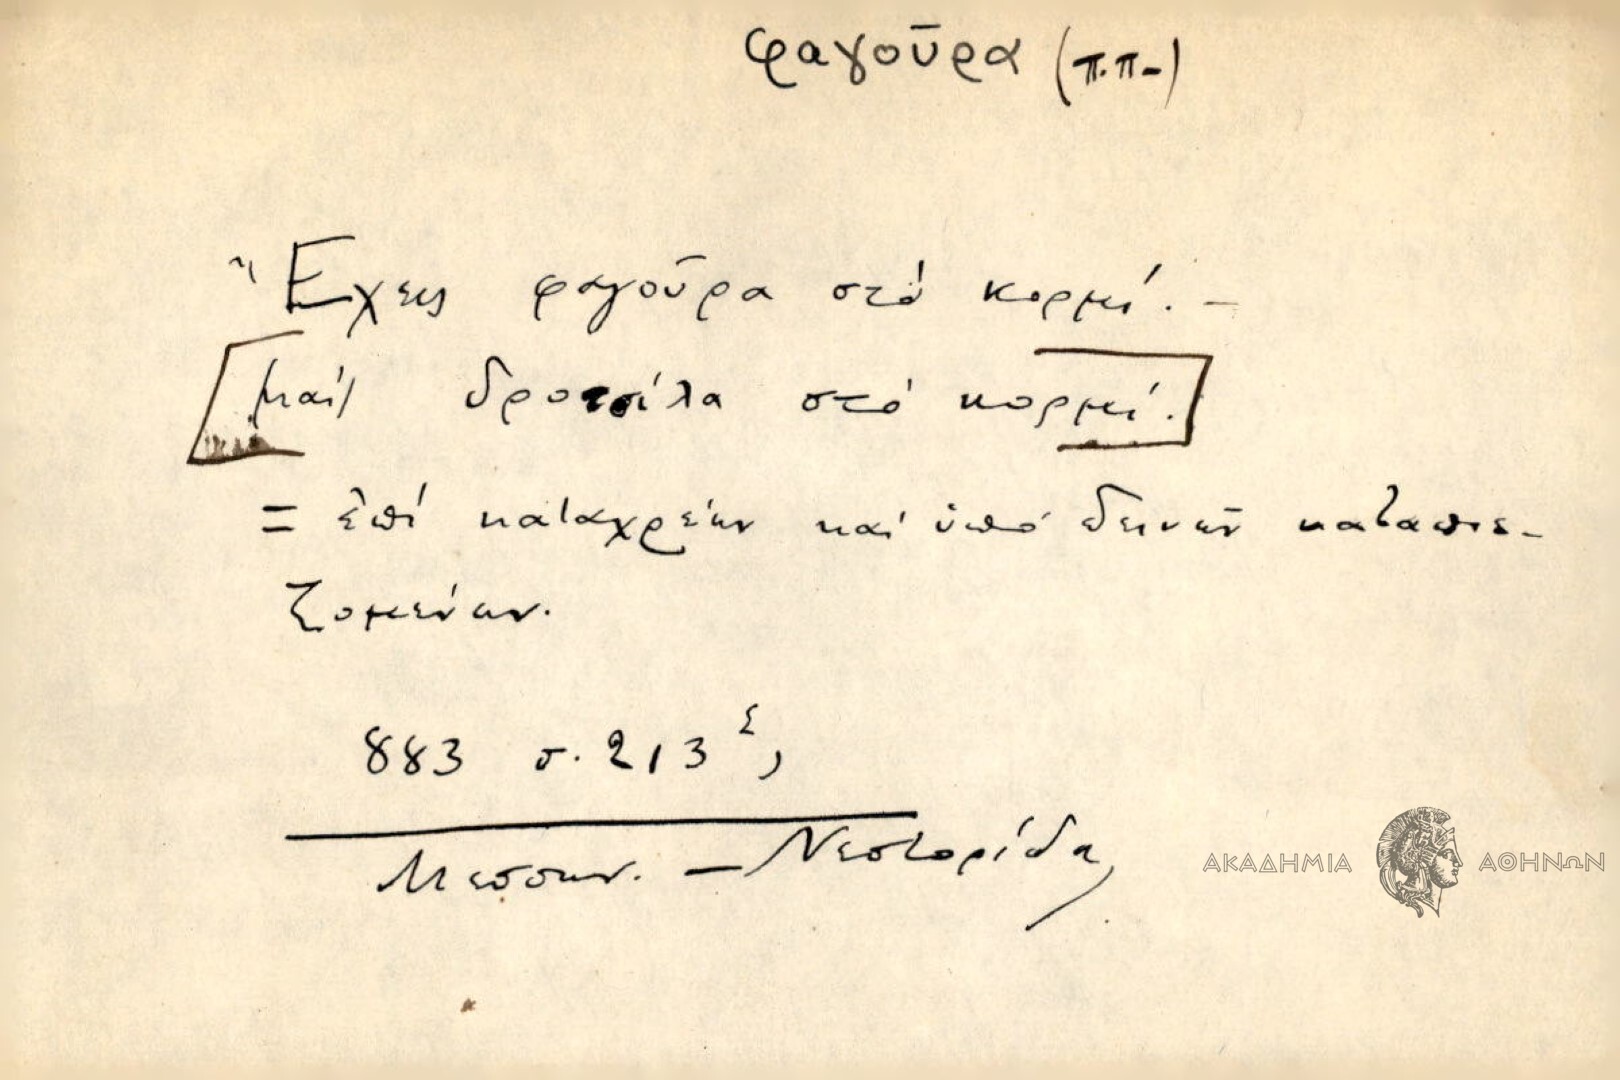 φαγοῦρα (π.π-)
Ἔχεις φαγοῦρα στό κορμί. -
καί δροτσίλα στό κορμί.
= ἐπί καταχρέων καί ὑπό δεινῶν καταπιε-
ζομένων.
883 σ. 213
Μεσσην. - Νεστορίδα
ΑΚΑΔΗΜΙΑ ΑΘΗΝΩΝ